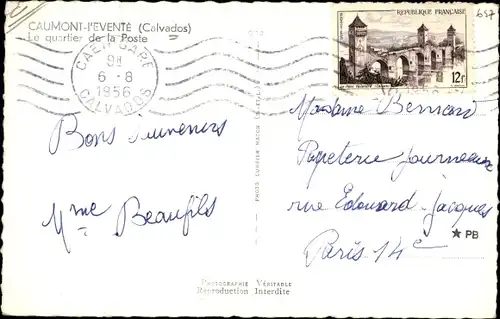 CAUMONT-l'EVENTÉ (Calvados)
Le quartier de la Poste
CAEN GARE
9H
6-8
1956
CALVADOS
REPUBLIQUE FRANÇAISE
12f
657
Bons souvenirs
Mme Beaufils
Madame Bernard
Papeterie Journaux
rue Edouard-Jacques
Paris 14e
★ PB
PHOTOGRAPHIE VÉRITABLE
Reproduction Interdite